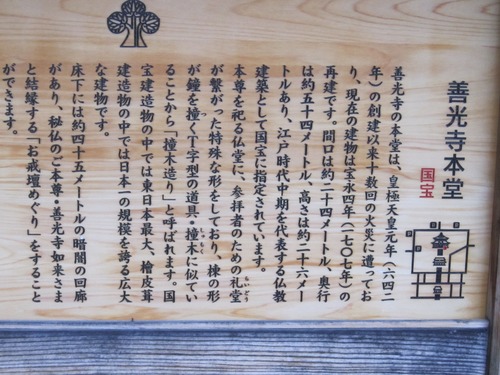 善光寺本堂
国宝
善光寺の本堂は、皇極天皇元年（六四二
年）の創建以来十数回の火災に遭ってお
り、現在の建物は宝永四年（一七〇七年）の
再建です。間口は約二十四メートル、奥行
は約五十四メートル、高さは約二十六メー
トルあり、江戸時代中期を代表する仏教
建築として国宝に指定されています。
本尊を祀る仏堂に、参拝者のための礼堂
が繋がった特殊な形をしており、棟の形
が鐘を撞くT字型の道具・撞木に似てい
ることから「撞木造り」と呼ばれます。国
宝建造物の中では東日本最大、檜皮葺
建造物の中では日本一の規模を誇る広大
な建物です。
床下には約四十五メートルの暗闇の回廊
があり、秘仏のご本尊・善光寺如来さま
と結縁する「お戒壇めぐり」をすること
ができます。